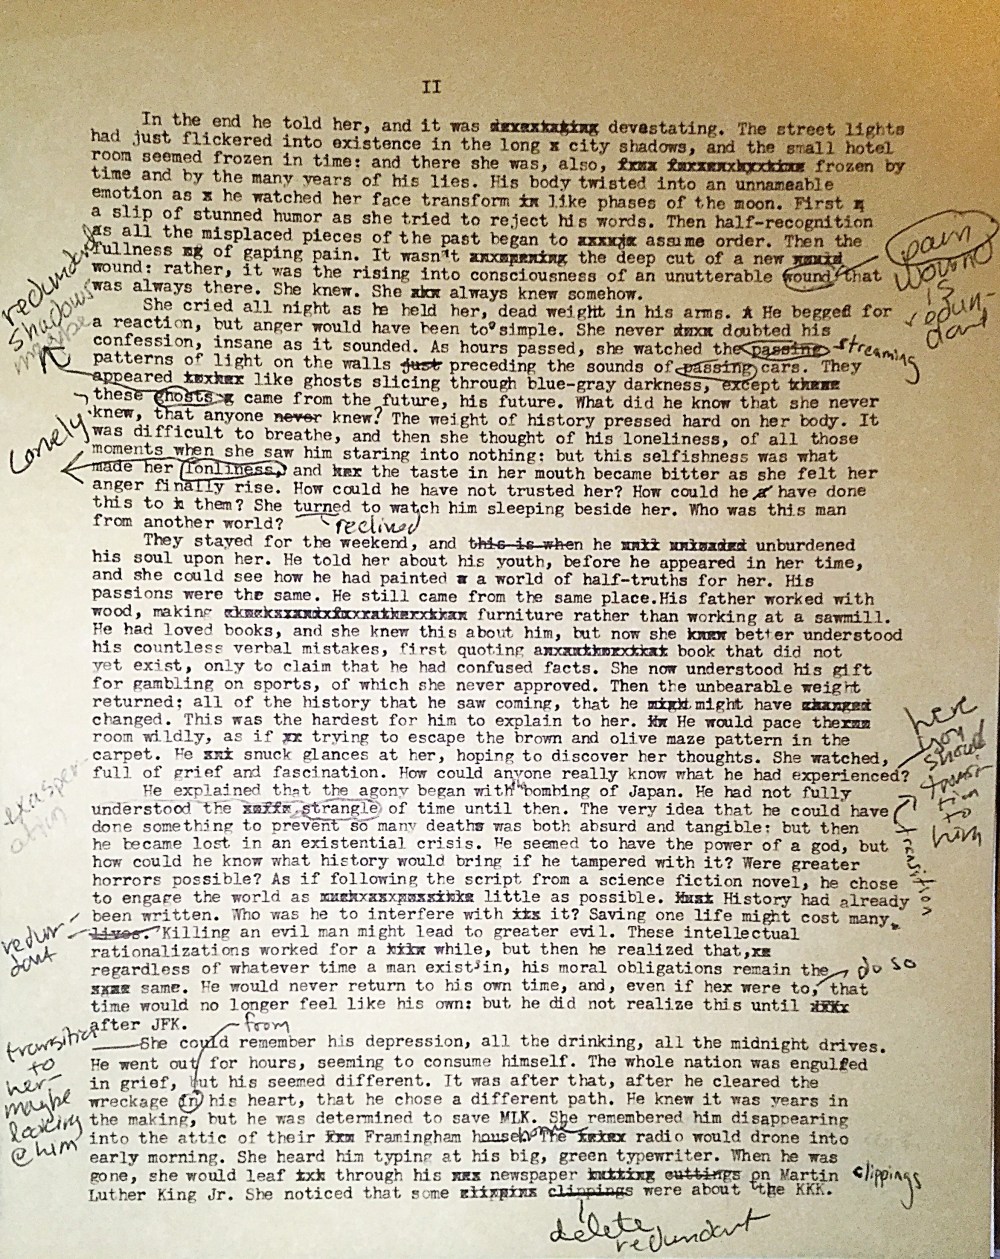 II
In the end he told her, and it was devastating. The street lights
had just flickered into existence in the long x city shadows, and the small hotel
room seemed frozen in time: and there she was, also, frozen by
time and by the many years of his lies. His body twisted into an unnameable
emotion as x he watched her face transform in like phases of the moon. First
a slip of stunned humor as she tried to reject his words. Then half-recognition
as all the misplaced pieces of the past began to assume order. Then the
fullness of gaping pain. It wasn't the deep cut of a new
wound: rather, it was the rising into consciousness of an unutterable wound that
was always there. She knew. She always knew somehow.
pain
wound
is
redun-
dant
redundant
shadows
maybe
She cried all night as he held her, dead weight in his arms. He begged for
a reaction, but anger would have been to simple. She never doubted his
confession, insane as it sounded. As hours passed, she watched the passing streaming
patterns of light on the walls just preceding the sounds of passing cars. They
appeared like ghosts slicing through blue-gray darkness, except
these ghosts came from the future, his future. What did he know that she never
knew, that anyone never knew? The weight of history pressed hard on her body. It
was difficult to breathe, and then she thought of his loneliness, of all those
moments when she saw him staring into nothing: but this selfishness was what
made her lonliness, and the taste in her mouth became bitter as she felt her
anger finally rise. How could he have not trusted her? How could he have done
this to them? She turned to watch him sleeping beside her. Who was this man
from another world?
lonely?
reclined
They stayed for the weekend, and this is when he unburdened
his soul upon her. He told her about his youth, before he appeared in her time,
and she could see how he had painted a world of half-truths for her. His
passions were the same. He still came from the same place.His father worked with
wood, making furniture rather than working at a sawmill.
He had loved books, and she knew this about him, but now she better understood
his countless verbal mistakes, first quoting book that did not
yet exist, only to claim that he had confused facts. She now understood his gift
for gambling on sports, of which she never approved. Then the unbearable weight
returned: all of the history that he saw coming, that he might have
changed. This was the hardest for him to explain to her. He would pace the
room wildly, as if trying to escape the brown and olive maze pattern in the
carpet. He snuck glances at her, hoping to discover her thoughts. She watched,
full of grief and fascination. How could anyone really know what he had experienced?
here
you
should
transi-
tion
to
him
He explained that the agony began with the bombing of Japan. He had not fully
understood the strangle of time until then. The very idea that he could have
done something to prevent so many deaths was both absurd and tangible: but then
he became lost in an existential crisis. He seemed to have the power of a god, but
how could he know what history would bring if he tampered with it? Were greater
horrors possible? As if following the script from a science fiction novel, he chose
to engage the world as little as possible. History had already
been written. Who was he to interfere with it? Saving one life might cost many
lives. Killing an evil man might lead to greater evil. These intellectual
rationalizations worked for a while, but then he realized that,
regardless of whatever time a man exists in, his moral obligations remain the
same. He would never return to his own time, and, even if hex were to, do so that
time would no longer feel like his own: but he did not realize this until
after JFK.
exasper-
ation
transition
redun-
dant
She could remember his depression, all the drinking, all the midnight drives.
He went out for hours, seeming to consume himself. The whole nation was engulfed
in grief, but his seemed different. It was after that, after he cleared the
wreckage in his heart, that he chose a different path. He knew it was years in
the making, but he was determined to save MLK. She remembered him disappearing
into the attic of their Framingham house. The radio would drone into
early morning. She heard him typing at his big, green typewriter. When he was
gone, she would leaf through his newspaper cuttings on Martin clippings
Luther King Jr. She noticed that some clippings were about the KKK.
from
home
transition
to
her-
maybe
looking
@ him
delete
redundant